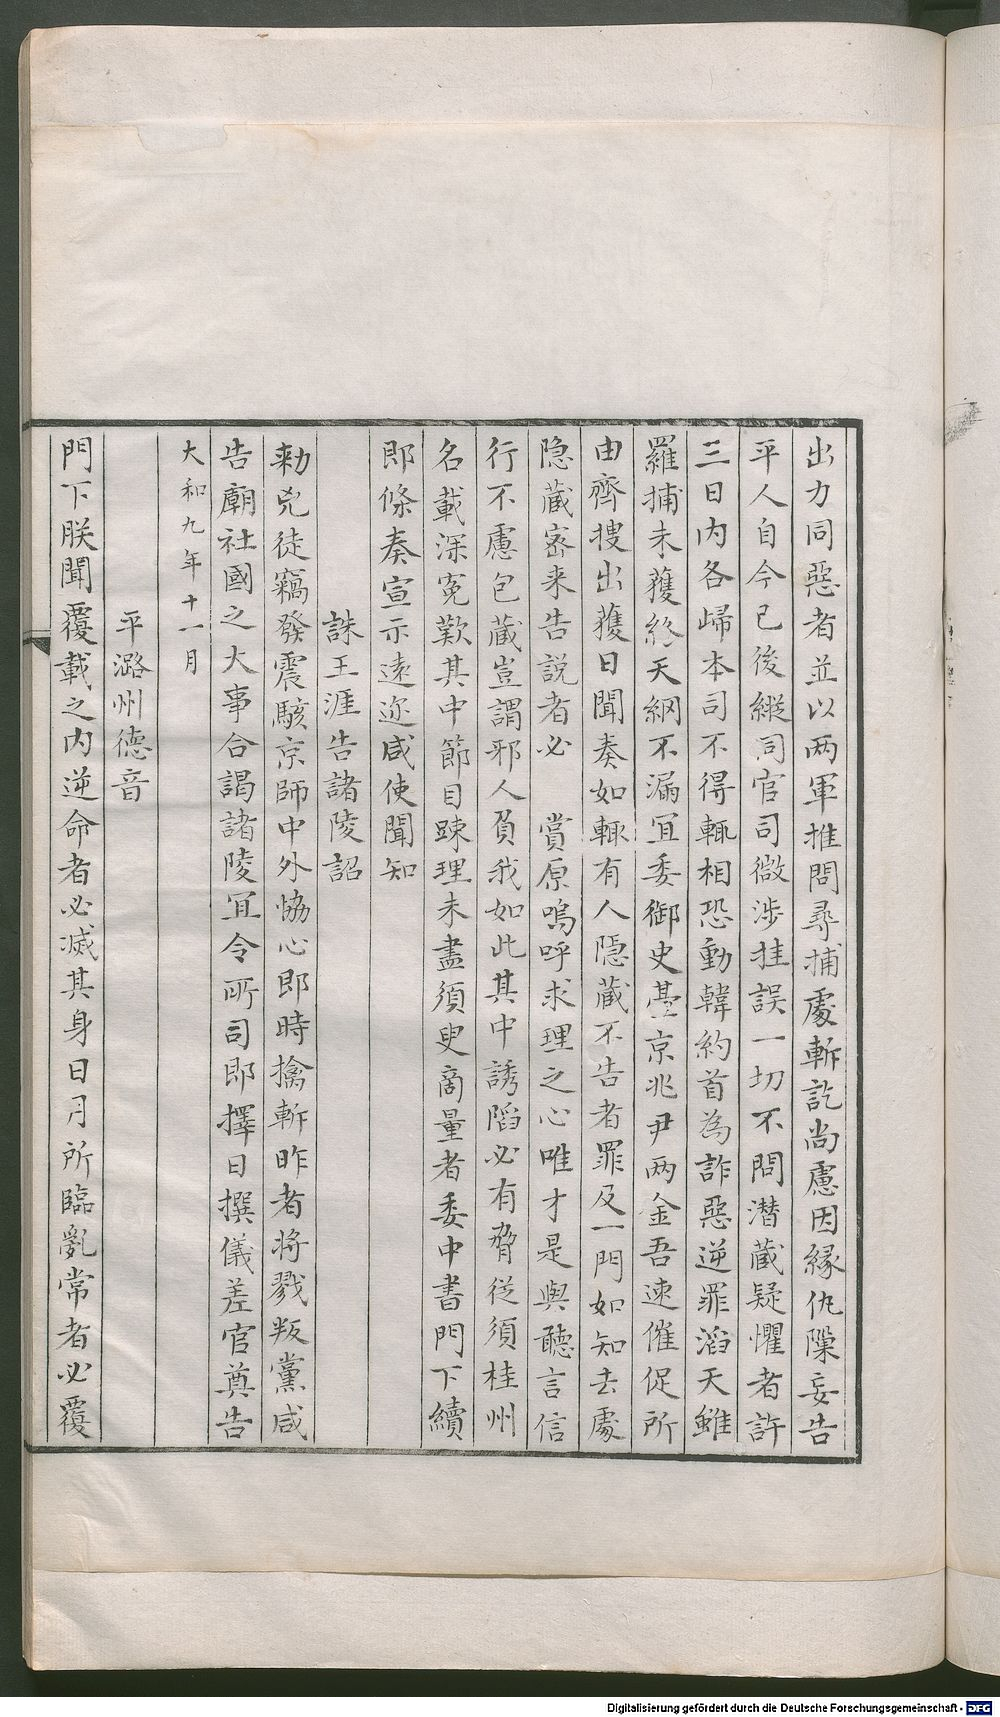 出力同惡者並以两軍推問尋捕處斬訖尚慮因縁仇隟妄告
平人自今已後縱同官司微涉挂誤一切不問潜蔵疑懼者許
三日内各歸本司不得輒相恐動韓約首為詐惡逆罪滔天雖
羅捕未獲終天網不漏冝委御史臺京兆尹两金吾速催促所
由齊搜出獲日聞奏如輒有人隠蔵不告者罪及一門如知去處
隠蔵密来告説者必　賞原嗚呼求理之心唯才是與聽言信
行不慮包蔵豈謂邪人負我如此其中誘䧟必有脅従須桂州
名載深寃歎其中節目踈理未盡須叟啇量者委中書門下續
即條奏宣示遠迩咸使聞知
誅王涯告諸陵詔
勑兇徒竊發震駭京師中外恊心即時擒斬昨者将戮叛黨咸
告廟社國之大事合謁諸陵冝令所司即擇日撰儀差官奠告
大和九年十一月
平潞州德音
門下朕聞覆載之内逆命者必滅其身日月所臨亂常者必覆
Digitalisierung gefördert durch die Deutsche Forschungsgemeinschaft - DFG